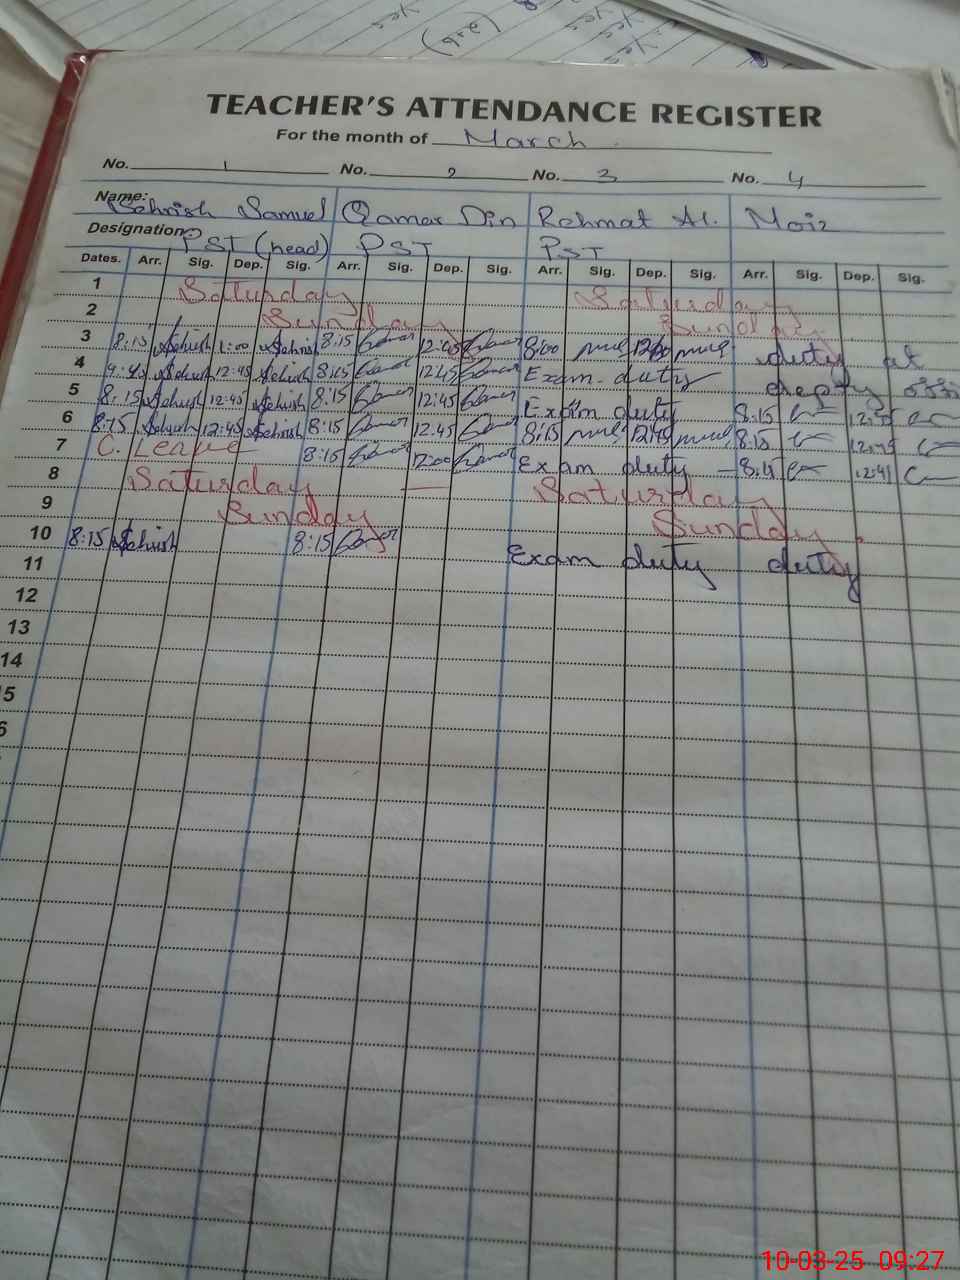 yes
yes
yes
yes
(a=b)
TEACHER'S ATTENDANCE REGISTER
For the month of March
No. 1 No. 2 No. 3 No. 4
Name: Sehrish Samuel Qamar Din Rehmat Al. Moiz
Designation: PST (head) PST PST
Dates. Arr. Sig. Dep. Sig. Arr. Sig. Dep. Sig. Arr. Sig. Dep. Sig. Arr. Sig. Dep. Sig.
1 Saturday Saturday
2 Sunday Sunday
3 8:15 Sehrish 1:00 Sehrish 8:15 Qamar 12:45 Qamar 8:00 12:00 duty at
4 Sehrish 12:45 Sehrish 8:15 Qamar 12:45 Qamar Exam duty office
5 8:15 Sehrish 12:45 Sehrish 8:15 Qamar 12:45 Qamar Exam duty 8:15
6 8:15 Sehrish 12:45 Sehrish 8:15 Qamar 12:45 Qamar 8:15 12:45 8:15 12:45
7 C. Leave 8:15 Qamar 12:00 Qamar Exam duty - 12:41
8 Saturday — Saturday
9 Sunday Sunday
10 8:15 Sehrish 8:15 Qamar Exam duty duty
11
12
13
14
5
6
10-03-25 09:27